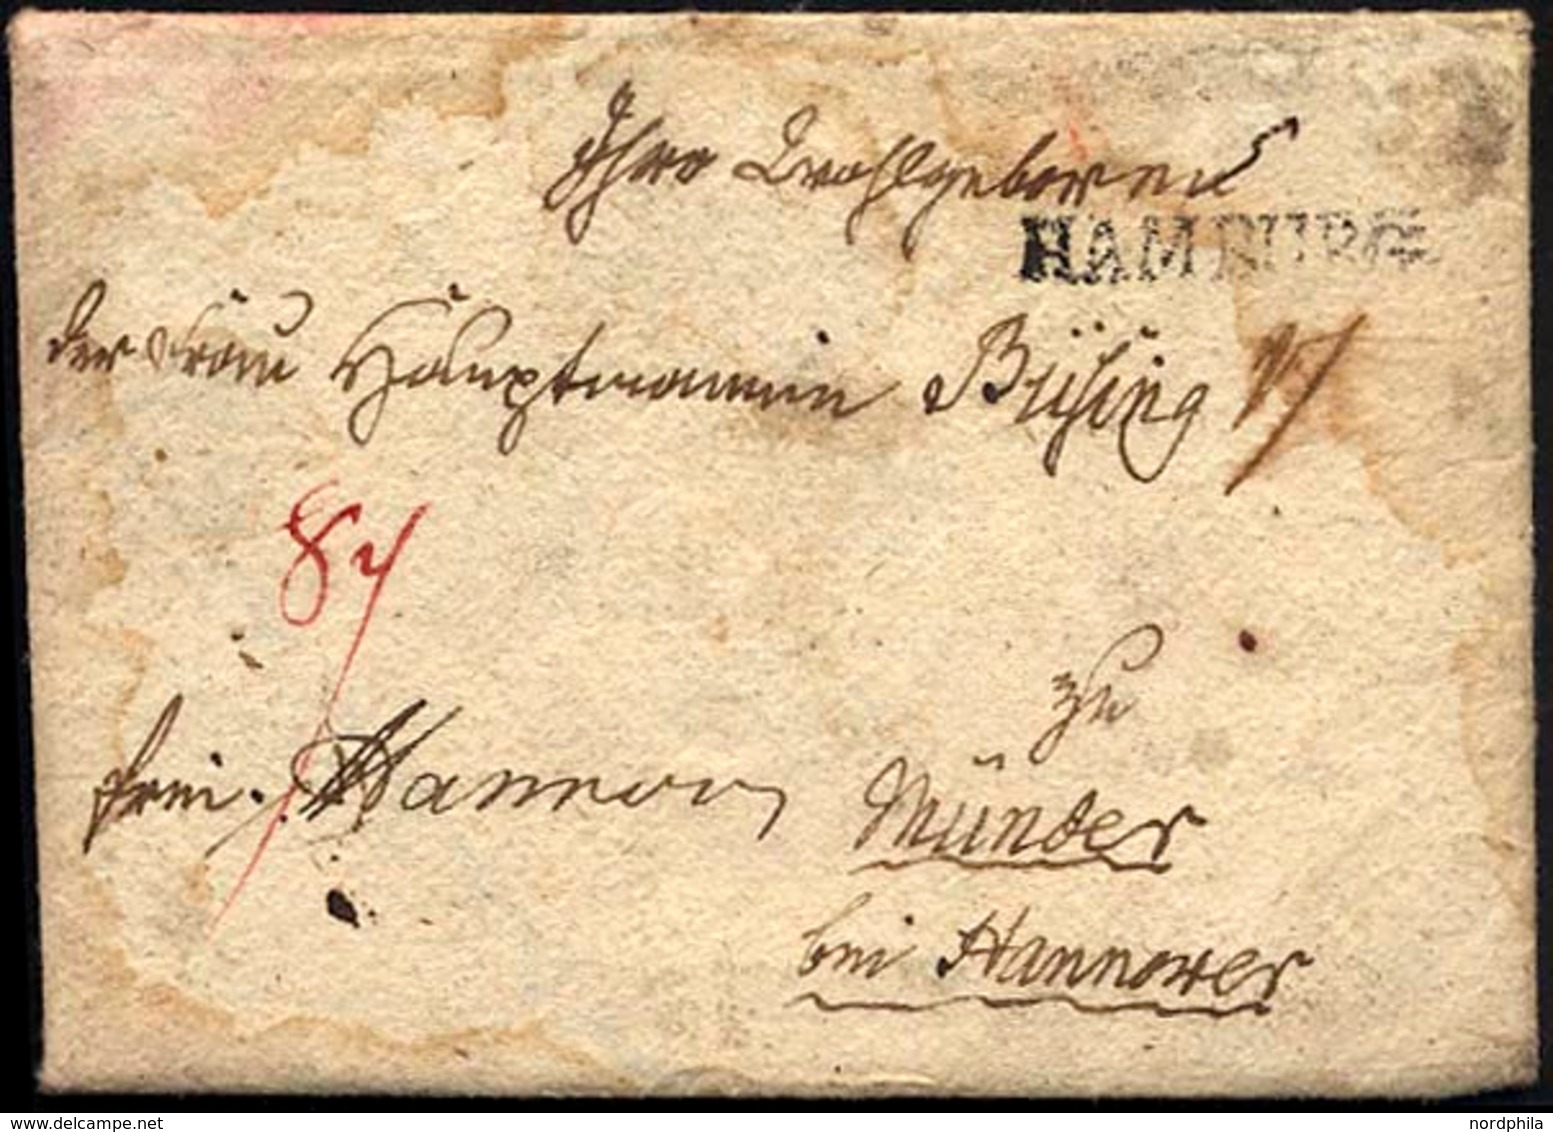 Ihro Wohlgeboren
HAMBURG
der Frau Hauptmannin Büsing
8
frei Hannover
zu
Münder
bei Hannover
delcampe.net
nordphila